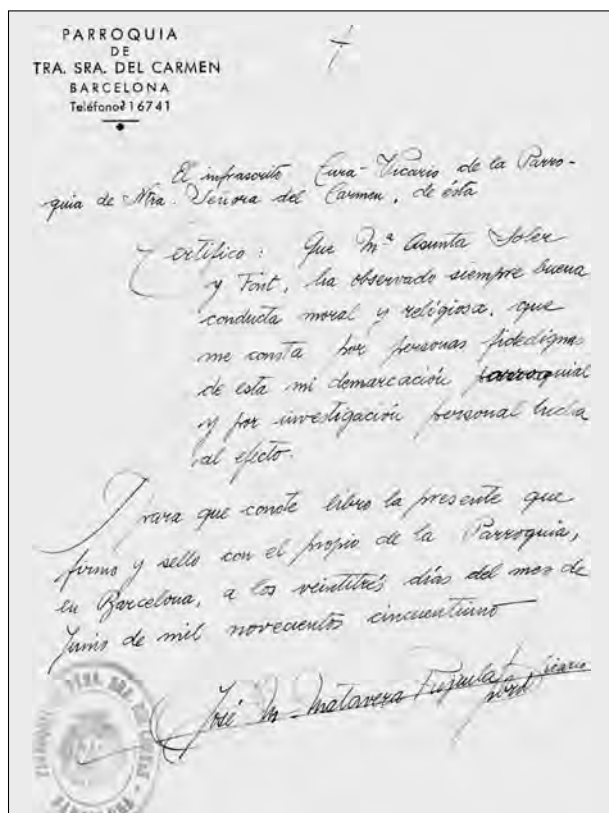 PARROQUIA
DE
TRA. SRA. DEL CARMEN
BARCELONA
Teléfono 216741
El infrascrito Cura-Vicario de la Parro-
quia de Ntra. Señora del Carmen, de ésta
Certifico: Que Mª Asunta Soler
y Font, ha observado siempre buena
conducta moral y religiosa, que
me consta por personas fidedignas
de esta mi demarcación parroquial
y por investigación personal hecha
al efecto.
Y para que conste libro la presente que
firmo y sello con el propio de la Parroquia,
en Barcelona, a los veintitrés días del mes de
Junio de mil novecientos cincuentiuno
José M. Matavera
Vicario